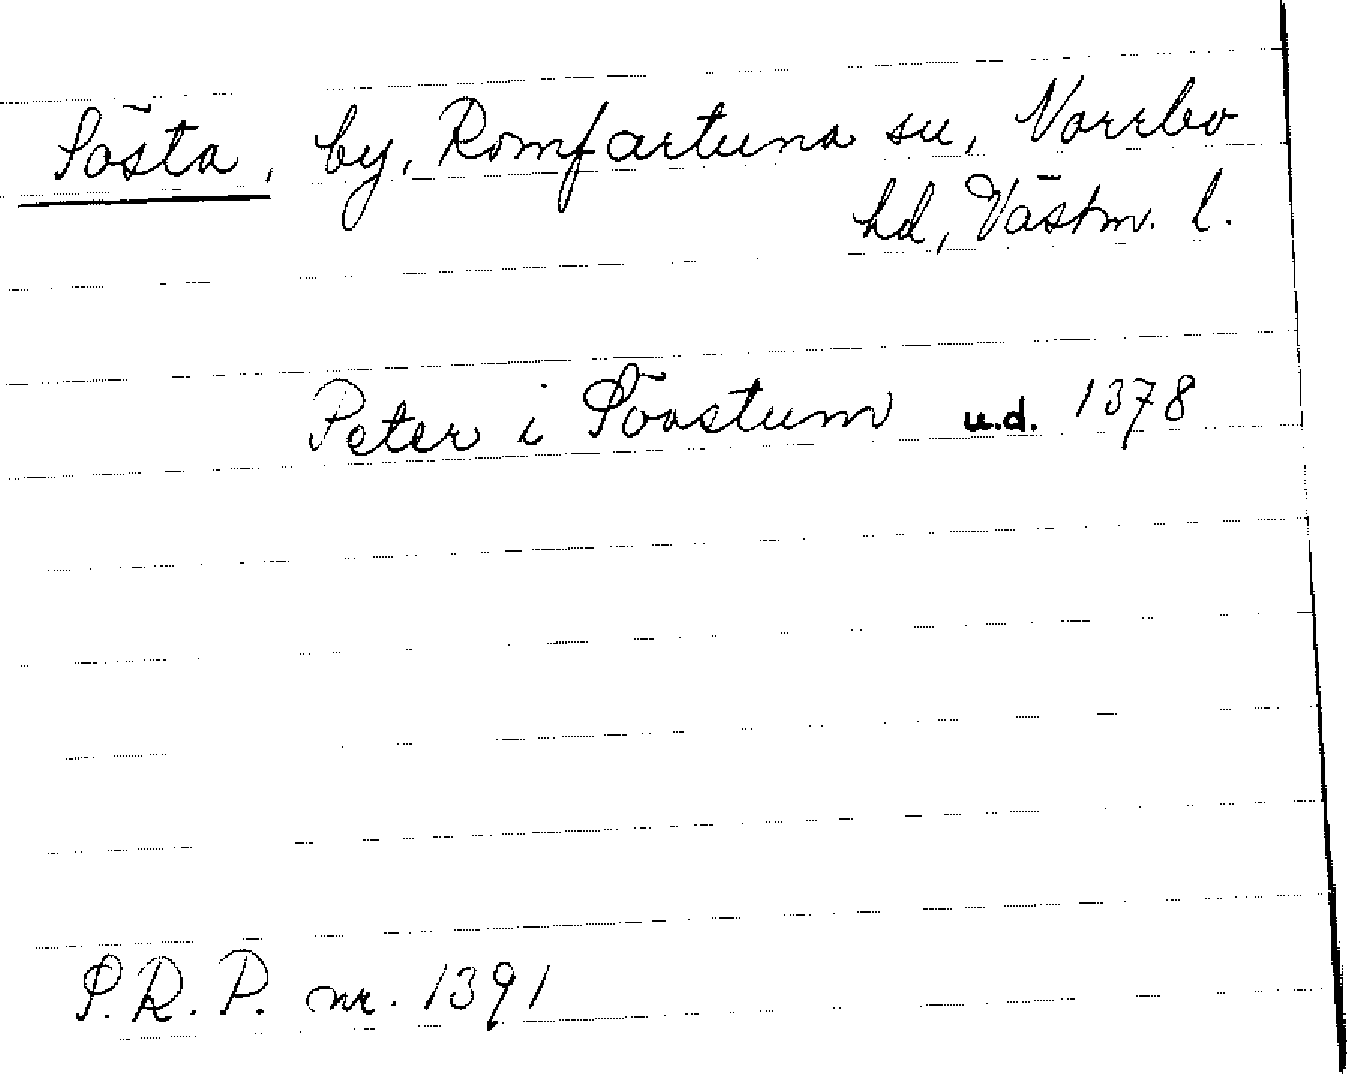 Sösta, by, Romfartuna sn, Norrbo
hd, Västm. l.
Peter i Söostum u.d. 1378
S.R.P. nr. 1391